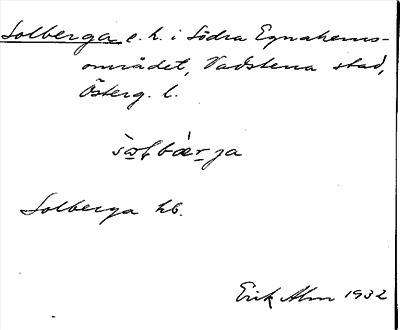 Solberga e. h. i Södra Egnahems-
området, Vadstena stad,
Österg. l.
Solberga hb.
Erik Alm 1932